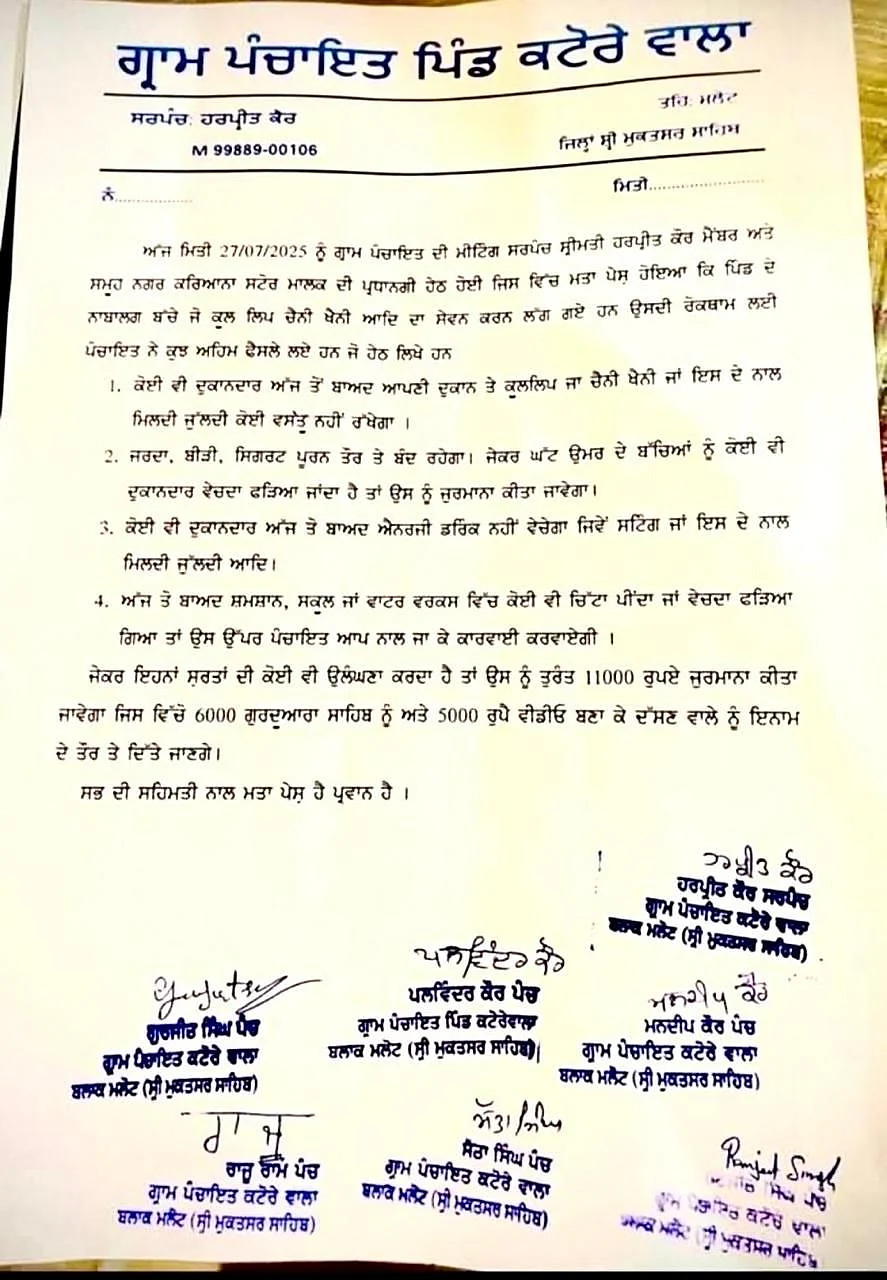 ਗ੍ਰਾਮ ਪੰਚਾਇਤ ਪਿੰਡ ਕਟੋਰੇ ਵਾਲਾ
ਸਰਪੰਚ: ਹਰਪ੍ਰੀਤ ਕੌਰ
ਤਹਿ: ਮਲੋਟ
M 99889-00106
ਜਿਲ੍ਹਾਂ ਸ੍ਰੀ ਮੁਕਤਸਰ ਸਾਹਿਬ
ਨੰ..................
ਮਿਤੀ..........................
ਅੱਜ ਮਿਤੀ 27/07/2025 ਨੂੰ ਗ੍ਰਾਮ ਪੰਚਾਇਤ ਦੀ ਮੀਟਿੰਗ ਸਰਪੰਚ ਸ੍ਰੀਮਤੀ ਹਰਪ੍ਰੀਤ ਕੌਰ ਮੈਂਬਰ ਅਤੇ
ਸਮੂਹ ਨਗਰ ਕਰਿਆਨਾ ਸਟੋਰ ਮਾਲਕ ਦੀ ਪ੍ਰਧਾਨਗੀ ਹੇਠ ਹੋਈ ਜਿਸ ਵਿੱਚ ਮਤਾ ਪੇਸ਼ ਹੋਇਆ ਕਿ ਪਿੰਡ ਦੇ
ਨਾਬਾਲਗ ਬੱਚੇ ਜੋ ਕੂਲ ਲਿਪ ਚੈਨੀ ਖੈਨੀ ਆਦਿ ਦਾ ਸੇਵਨ ਕਰਨ ਲੱਗ ਗਏ ਹਨ ਉਸਦੀ ਰੋਕਥਾਮ ਲਈ
ਪੰਚਾਇਤ ਨੇ ਕੁਝ ਅਹਿਮ ਫੈਸਲੇ ਲਏ ਹਨ ਜੋ ਹੇਠ ਲਿਖੇ ਹਨ
1. ਕੋਈ ਵੀ ਦੁਕਾਨਦਾਰ ਅੱਜ ਤੋਂ ਬਾਅਦ ਆਪਣੀ ਦੁਕਾਨ ਤੇ ਕੂਲਲਿਪ ਜਾ ਚੈਨੀ ਖੈਨੀ ਜਾਂ ਇਸ ਦੇ ਨਾਲ
ਮਿਲਦੀ ਜੁੱਲਦੀ ਕੋਈ ਵਸਤੂ ਨਹੀਂ ਰੱਖੇਗਾ ।
2. ਜਰਦਾ, ਬੀੜੀ, ਸਿਗਰਟ ਪੂਰਨ ਤੌਰ ਤੇ ਬੰਦ ਰਹੇਗਾ। ਜੇਕਰ ਘੱਟ ਉਮਰ ਦੇ ਬੱਚਿਆਂ ਨੂੰ ਕੋਈ ਵੀ
ਦੁਕਾਨਦਾਰ ਵੇਚਦਾ ਫੜਿਆ ਜਾਂਦਾ ਹੈ ਤਾਂ ਉਸ ਨੂੰ ਜੁਰਮਾਨਾ ਕੀਤਾ ਜਾਵੇਗਾ।
3. ਕੋਈ ਵੀ ਦੁਕਾਨਦਾਰ ਅੱਜ ਤੋ ਬਾਅਦ ਐਨਰਜੀ ਡਰਿੰਕ ਨਹੀਂ ਵੇਚੇਗਾ ਜਿਵੇਂ ਸਟਿੰਗ ਜਾਂ ਇਸ ਦੇ ਨਾਲ
ਮਿਲਦੀ ਜੁੱਲਦੀ ਆਦਿ।
4. ਅੱਜ ਤੋ ਬਾਅਦ ਸ਼ਮਸ਼ਾਨ, ਸਕੂਲ ਜਾਂ ਵਾਟਰ ਵਰਕਸ ਵਿੱਚ ਕੋਈ ਵੀ ਚਿੱਟਾ ਪੀਂਦਾ ਜਾਂ ਵੇਚਦਾ ਫੜਿਆ
ਗਿਆ ਤਾਂ ਉਸ ਉੱਪਰ ਪੰਚਾਇਤ ਆਪ ਨਾਲ ਜਾ ਕੇ ਕਾਰਵਾਈ ਕਰਵਾਏਗੀ ।
ਜੇਕਰ ਇਹਨਾਂ ਸ਼ਰਤਾਂ ਦੀ ਕੋਈ ਵੀ ਉਲੰਘਣਾ ਕਰਦਾ ਹੈ ਤਾਂ ਉਸ ਨੂੰ ਤੁਰੰਤ 11000 ਰੁਪਏ ਜੁਰਮਾਨਾ ਕੀਤਾ
ਜਾਵੇਗਾ ਜਿਸ ਵਿੱਚੋ 6000 ਗੁਰਦੂਆਰਾ ਸਾਹਿਬ ਨੂੰ ਅਤੇ 5000 ਰੁਪੈ ਵੀਡੀਓ ਬਣਾ ਕੇ ਦੱਸਣ ਵਾਲੇ ਨੂੰ ਇਨਾਮ
ਦੇ ਤੌਰ ਤੇ ਦਿੱਤੇ ਜਾਣਗੇ।
ਸਭ ਦੀ ਸਹਿਮਤੀ ਨਾਲ ਮਤਾ ਪੇਸ਼ ਹੈ ਪ੍ਰਵਾਨ ਹੈ ।
ਹਰਪ੍ਰੀਤ ਕੌਰ
ਹਰਪ੍ਰੀਤ ਕੌਰ ਸਰਪੰਚ
ਗ੍ਰਾਮ ਪੰਚਾਇਤ ਕਟੋਰੇ ਵਾਲਾ
ਬਲਾਕ ਮਲੋਟ (ਸ੍ਰੀ ਮੁਕਤਸਰ ਸਾਹਿਬ)
ਪਲਵਿੰਦਰ ਕੌਰ
ਪਲਵਿੰਦਰ ਕੌਰ ਪੰਚ
ਗ੍ਰਾਮ ਪੰਚਾਇਤ ਪਿੰਡ ਕਟੋਰੇਵਾਲਾ
ਬਲਾਕ ਮਲੋਟ (ਸ੍ਰੀ ਮੁਕਤਸਰ ਸਾਹਿਬ)
ਗੁਰਜੀਤ ਸਿੰਘ ਪੰਚ
ਗ੍ਰਾਮ ਪੰਚਾਇਤ ਕਟੋਰੇ ਵਾਲਾ
ਬਲਾਕ ਮਲੋਟ (ਸ੍ਰੀ ਮੁਕਤਸਰ ਸਾਹਿਬ)
ਮਨਦੀਪ ਕੌਰ
ਮਨਦੀਪ ਕੌਰ ਪੰਚ
ਗ੍ਰਾਮ ਪੰਚਾਇਤ ਕਟੋਰੇ ਵਾਲਾ
ਬਲਾਕ ਮਲੋਟ (ਸ੍ਰੀ ਮੁਕਤਸਰ ਸਾਹਿਬ)
ਰਾਜੂ
ਰਾਜੂ ਰਾਮ ਪੰਚ
ਗ੍ਰਾਮ ਪੰਚਾਇਤ ਕਟੋਰੇ ਵਾਲਾ
ਬਲਾਕ ਮਲੋਟ (ਸ੍ਰੀ ਮੁਕਤਸਰ ਸਾਹਿਬ)
ਸਿੰਘ ਪੰਚ
ਗ੍ਰਾਮ ਪੰਚਾਇਤ ਕਟੋਰੇ ਵਾਲਾ
ਬਲਾਕ ਮਲੋਟ (ਸ੍ਰੀ ਮੁਕਤਸਰ ਸਾਹਿਬ)
Ranjeet Singh
ਸਿੰਘ ਪੰਚ
ਗ੍ਰਾਮ ਪੰਚਾਇਤ ਕਟੋਰੇ ਵਾਲਾ
ਬਲਾਕ ਮਲੋਟ (ਸ੍ਰੀ ਮੁਕਤਸਰ ਸਾਹਿਬ)